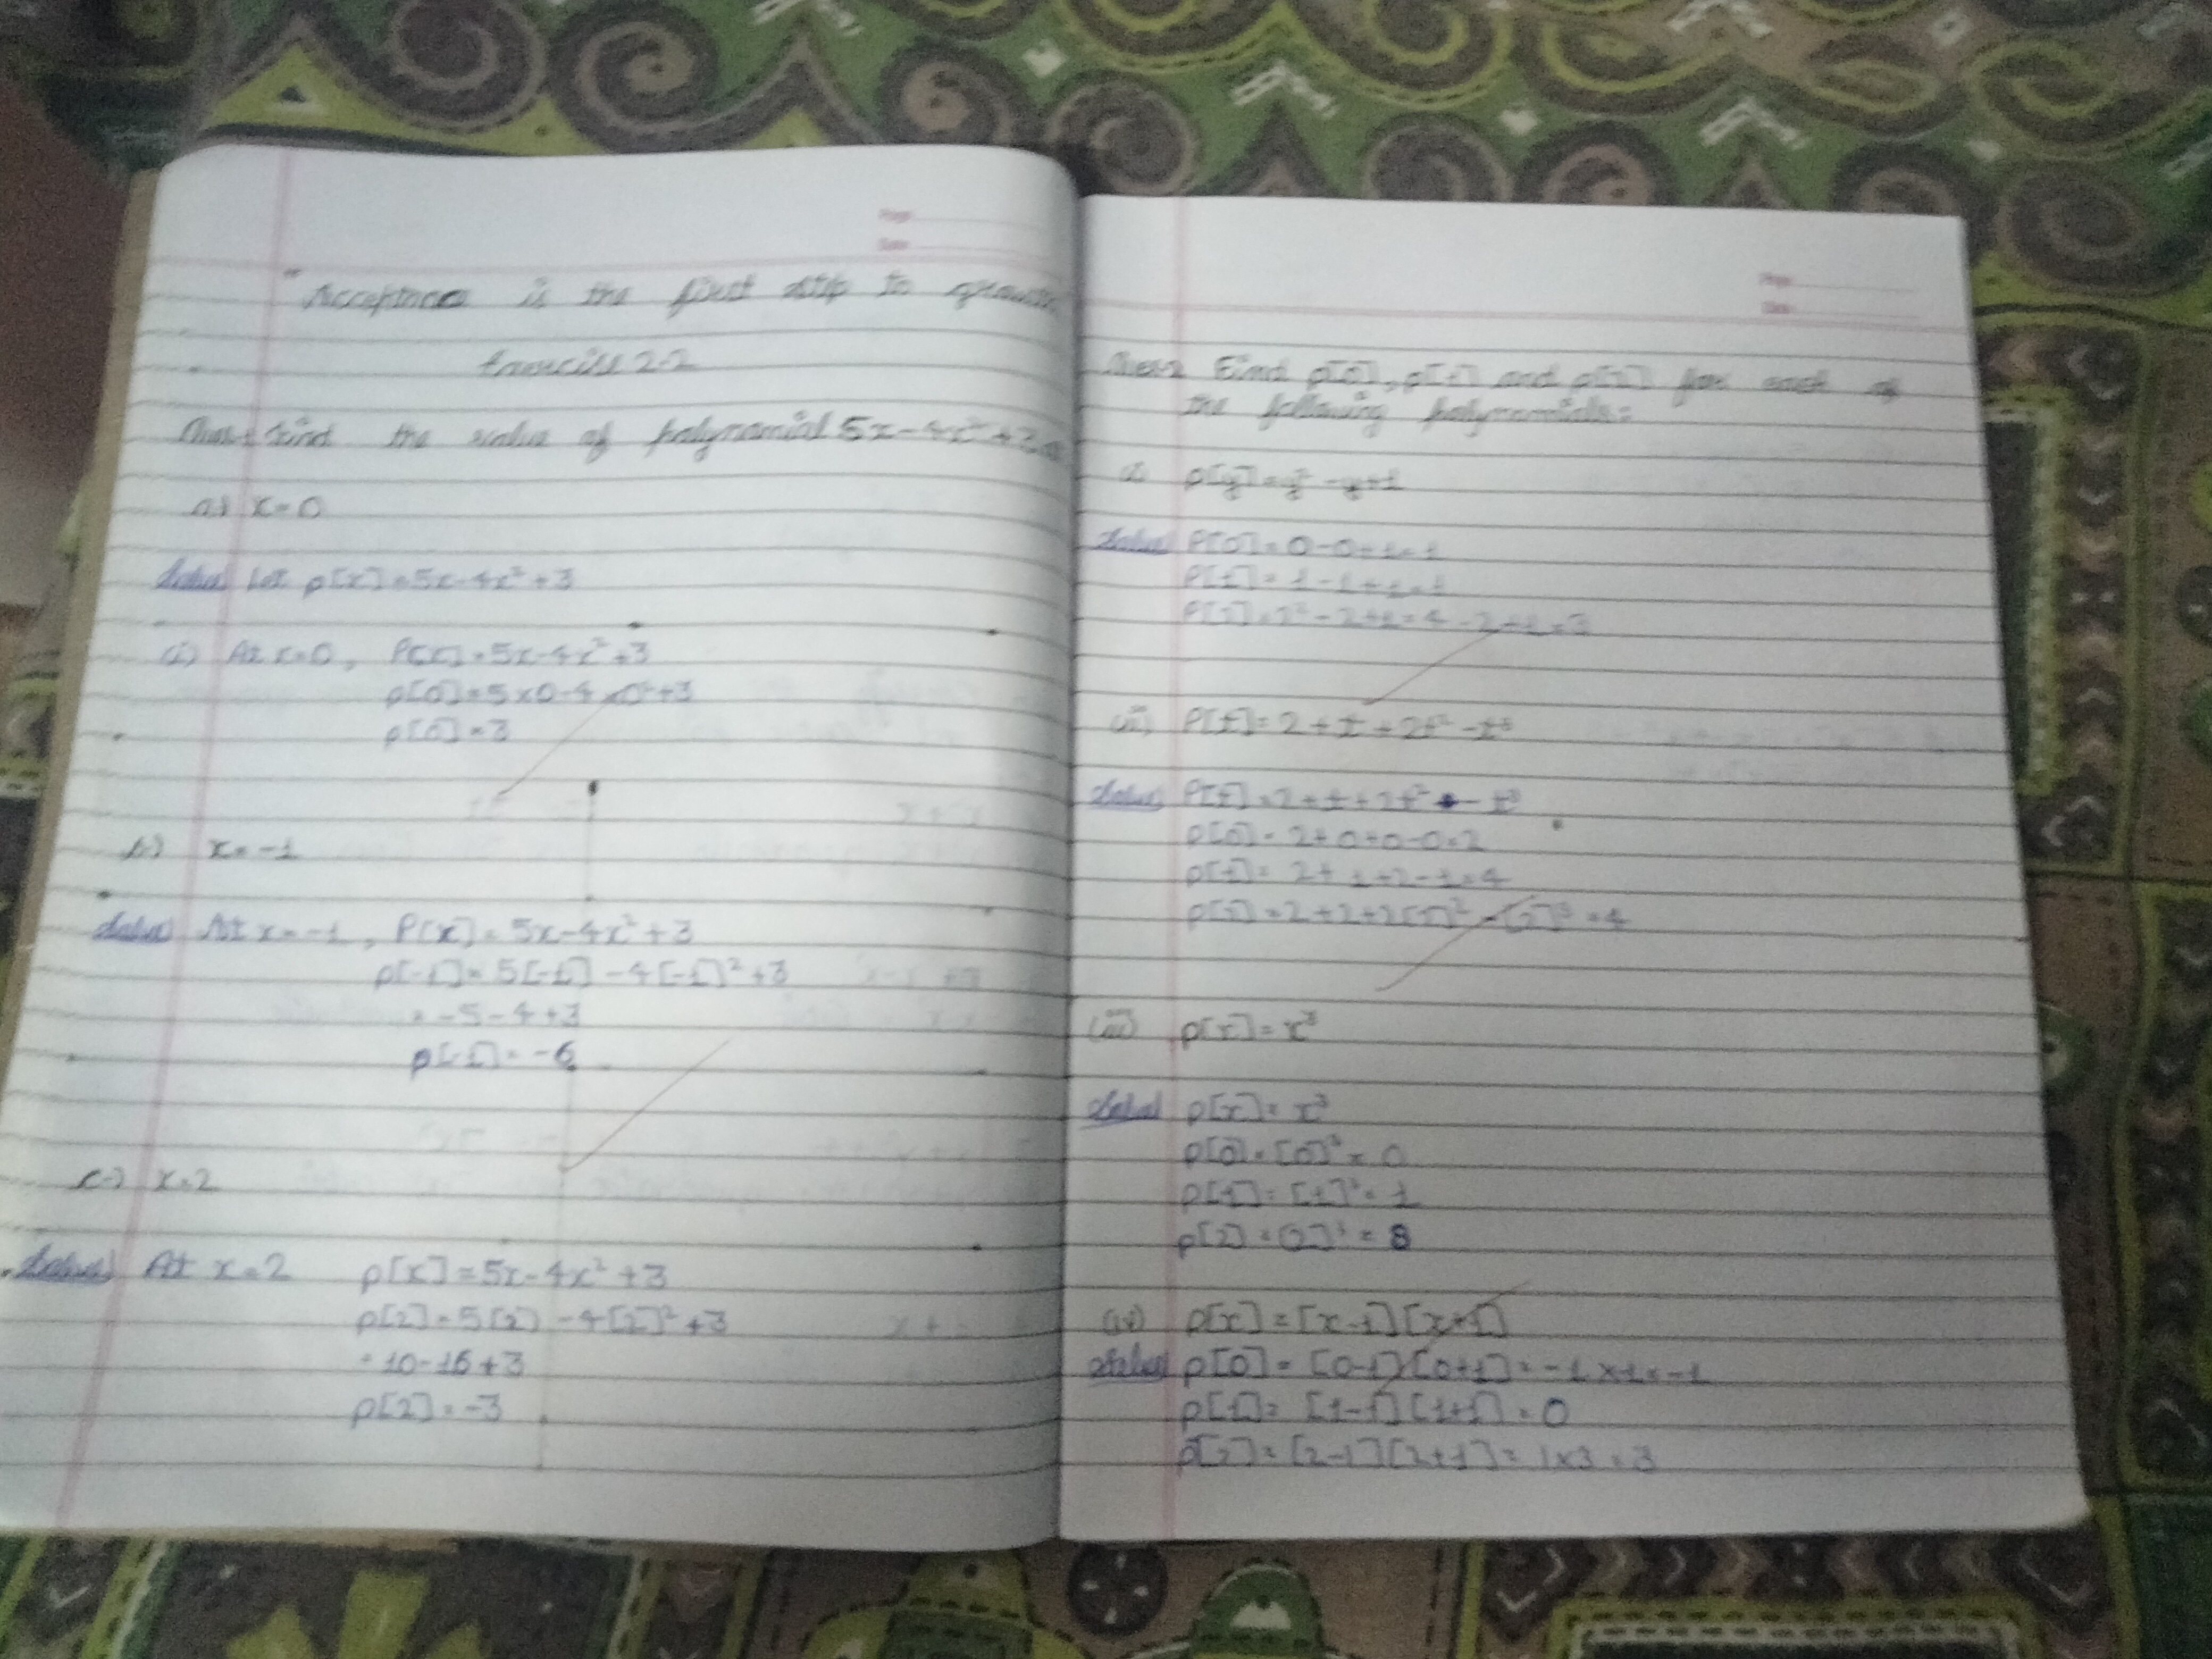 Page
Date
"Acceptance is the first step to growth
Exercise 2.2
Ques-1 Find the value of polynomial 5x-4x²+3 at
a) x=0
Solu) Let p[x]=5x-4x²+3
(i) At x=0, P[x]=5x-4x²+3
p[0]=5x0-4x0²+3
p[0]=3
b) x=-1
Solu) At x=-1, P[x]=5x-4x²+3
p[-1]=5[-1]-4[-1]²+3
=-5-4+3
p[-1]=-6
c) x=2
Solu) At x=2 p[x]=5x-4x²+3
p[2]=5[2]-4[2]²+3
=10-16+3
p[2]=-3
Page
Date
Ques-2 Find p[0], p[1] and p[2] for each of
the following polynomials:
i) p[y]=y²-y+1
Solu) P[0]=0-0+1=1
P[1]=1-1+1=1
P[2]=2²-2+1=4-2+1=3
(ii) P[t]=2+t+2t²-t³
Solu) P[t]=2+t+2t²-t³
p[0]=2+0+0-0=2
p[1]=2+1+2-1=4
p[2]=2+2+2[2]²-[2]³=4
(iii) p[x]=x³
Solu) p[x]=x³
p[0]=[0]³=0
p[1]=[1]³=1
p[2]=[2]³=8
(iv) p[x]=[x-1][x+1]
Solu) p[0]=[0-1][0+1]=-1x1=-1
p[1]=[1-1][1+1]=0
p[2]=[2-1][2+1]=1x3=3